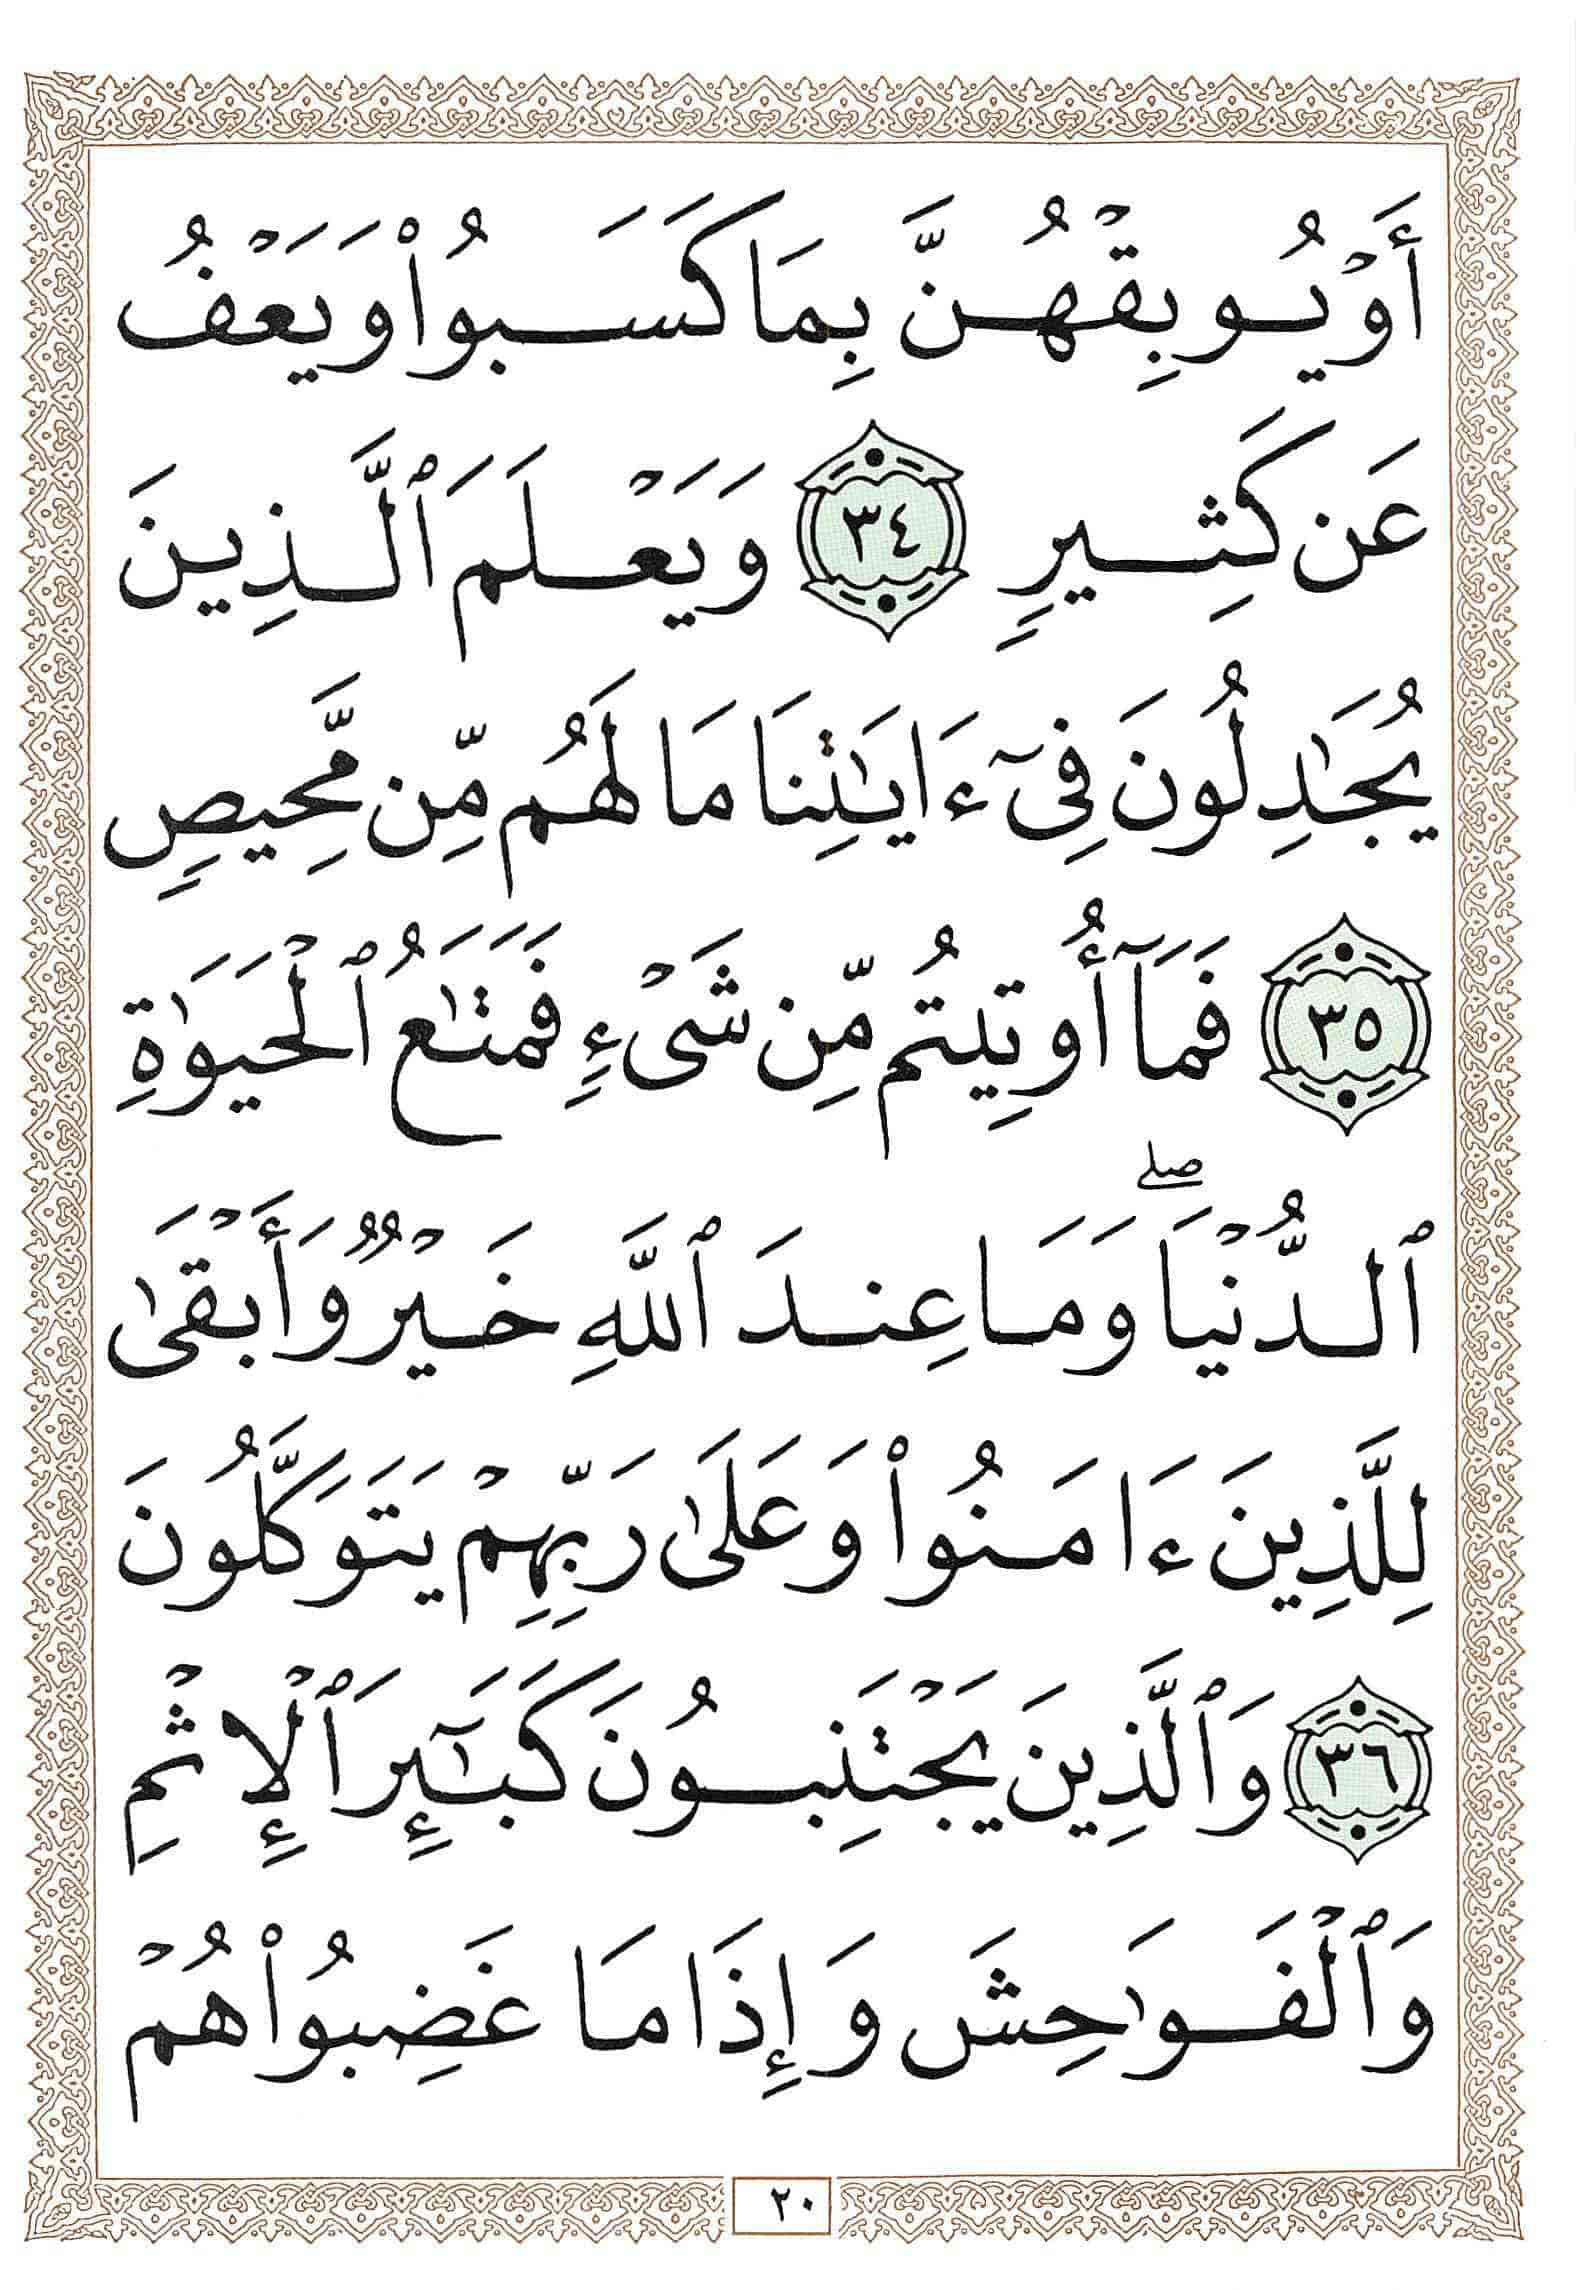 أَوۡ يُوبِقۡهُنَّ بِمَا كَسَبُواْ وَيَعۡفُ
عَن كَثِيرٍ ٣٤ وَيَعۡلَمَ ٱلَّذِينَ
يُجَٰدِلُونَ فِيٓ ءَايَٰتِنَا مَا لَهُم مِّن مَّحِيصٍ
٣٥ فَمَآ أُوتِيتُم مِّن شَيۡءٍ فَمَتَٰعُ ٱلۡحَيَوٰةِ
ٱلدُّنۡيَاۖ وَمَا عِندَ ٱللَّهِ خَيۡرٌ وَأَبۡقَىٰ
لِلَّذِينَ ءَامَنُواْ وَعَلَىٰ رَبِّهِمۡ يَتَوَكَّلُونَ
٣٦ وَٱلَّذِينَ يَجۡتَنِبُونَ كَبَٰٓئِرَ ٱلۡإِثۡمِ
وَٱلۡفَوَٰحِشَ وَإِذَا مَا غَضِبُواْ هُمۡ
٢٠